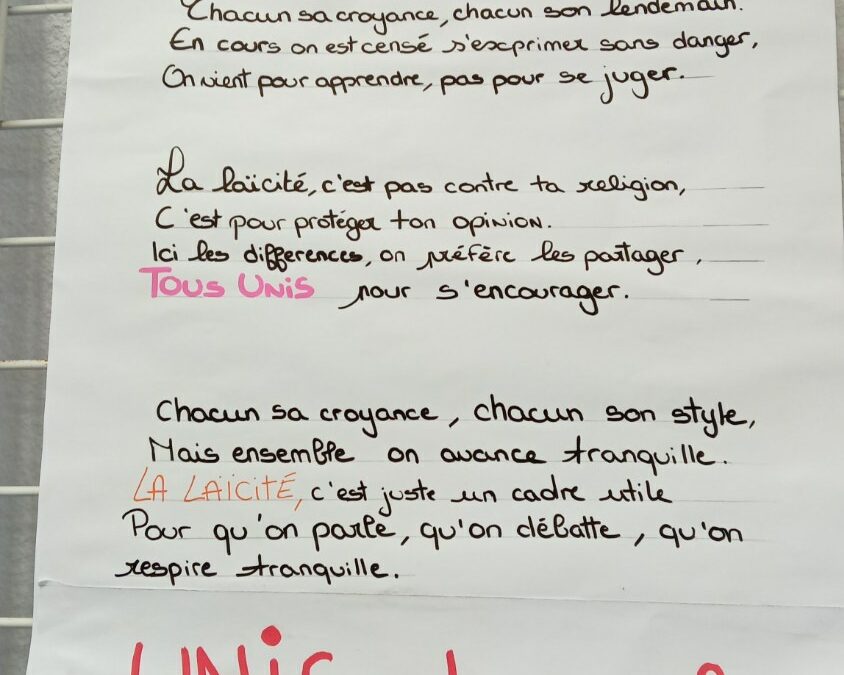 Chacun sa croyance, chacun son lendemain.
En cours on est censé s'exprimer sans danger,
On vient pour apprendre, pas pour se juger.
La laïcité, c'est pas contre ta religion,
C'est pour protéger ton opinion.
Ici les differences, on préfère les partager,
TOUS UNIS pour s'encourager.
Chacun sa croyance, chacun son style,
Mais ensemble on avance tranquille.
LA LAÏCITÉ, c'est juste un cadre utile
Pour qu'on parle, qu'on débatte, qu'on
respire tranquille.
UNIS